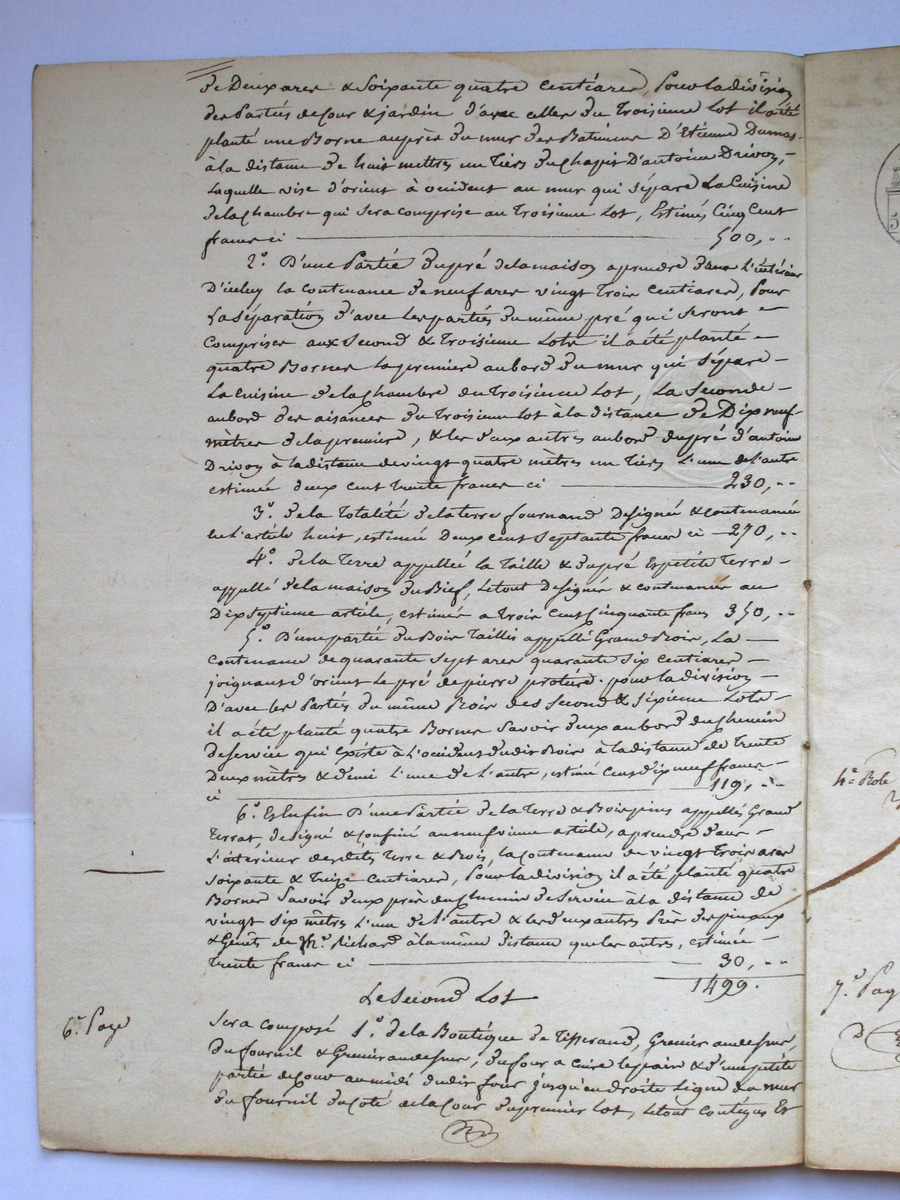 de Deux ares & Soixante quatre centiares, Pour la division
des Parties de Cour & jardin d'avec celles du Troisieme Lot il a été
planté une Borne auprès du mur des Batimens D'Etienne Dumas
à la distance de huit mettres un Tiers du Chapit D'antoine Drivon,
Laquelle vise d'orient à occident au mur qui sépare La Cuisine
de la chambre qui sera comprise au Troisieme Lot, Estimés Cinq Cent
francs ci 500, ..
2.º D'une Partie du pré de la maison aprendre dans L'intérieur
D'icelui la contenance de neuf ares vingt Trois Centiares, Pour
La séparation d'avec Les parties du même pré qui Seront
Comprises aux Second & Troisieme Lots il a été planté
quatre Bornes La premiere au bord du mur qui Sépare
La Cuisine de la chambre du Troisieme Lot, La Seconde
au bord des aisances du Troisieme Lot à la distance de Dix neuf
mètres de la premiere, & les deux autres au bord du pré d'antoine
Drivon à la distance de vingt quatre mètres un Tiers L'une de l'autre
estimée deux cent Trente francs ci 230, ..
3.º de la Totalité de la terre fournand Designée & contenancée
en L'article huit, estimée Deux cent Septante francs ci 270, ..
4.º de la Terre appellée La Taille & du pré Et petite Terre
appellé de la maison du Bief, Le tout Designée & contenancée au
Dix Septieme article, estimée a Trois Cent Cinquante francs 350, ..
5.º D'une partie du Bois Taillis appellé Grand Bois, La
Contenance de quarante Sept ares quarante Six Centiares
joignant d'orient Le pré de pierre protiere. pour la division
D'avec les Parties du même Bois des Second & Sixieme Lots
il a été planté quatre Bornes Savoir deux au bord du Chemin
de Service qui existe à L'occident dudit Bois à la distance de Trente
Deux mètres & demi L'une de L'autre, estimé Cent dix neuf francs
ci 119, ..
6.º Et Enfin D'une Partie de la Terre & Bois pins appellés Grand
Terrat, designé & Confiné au neufvieme article, aprendre dans
L'interieur desdits Terre & Bois, la Contenance de vingt Trois ares
Soixante & Treize Centiares, Pour la division il a été planté quatre
Bornes Savoir deux près du Chemin de Service à la distance de
vingt Six mètres L'une de L'autre & les deux autres Près des pinaux
& Genêts de Mr. Richard à la même distance que les autres, estimée
Trente francs ci 30, ..
1499.
Le Second Lot
6e. Page
Sera composé 1.º de la Boutique de Tisserand, Grenier au dessus,
Du fournil & Grenier au dessus, du four à Cuire le pain & d'une petite
partie de Cour au midi dudit four jusqu'en droite Ligne du mur
du fournil du Coté de la Cour du premier Lot, Le tout contigus Et
4e Role
7e. Pag
5